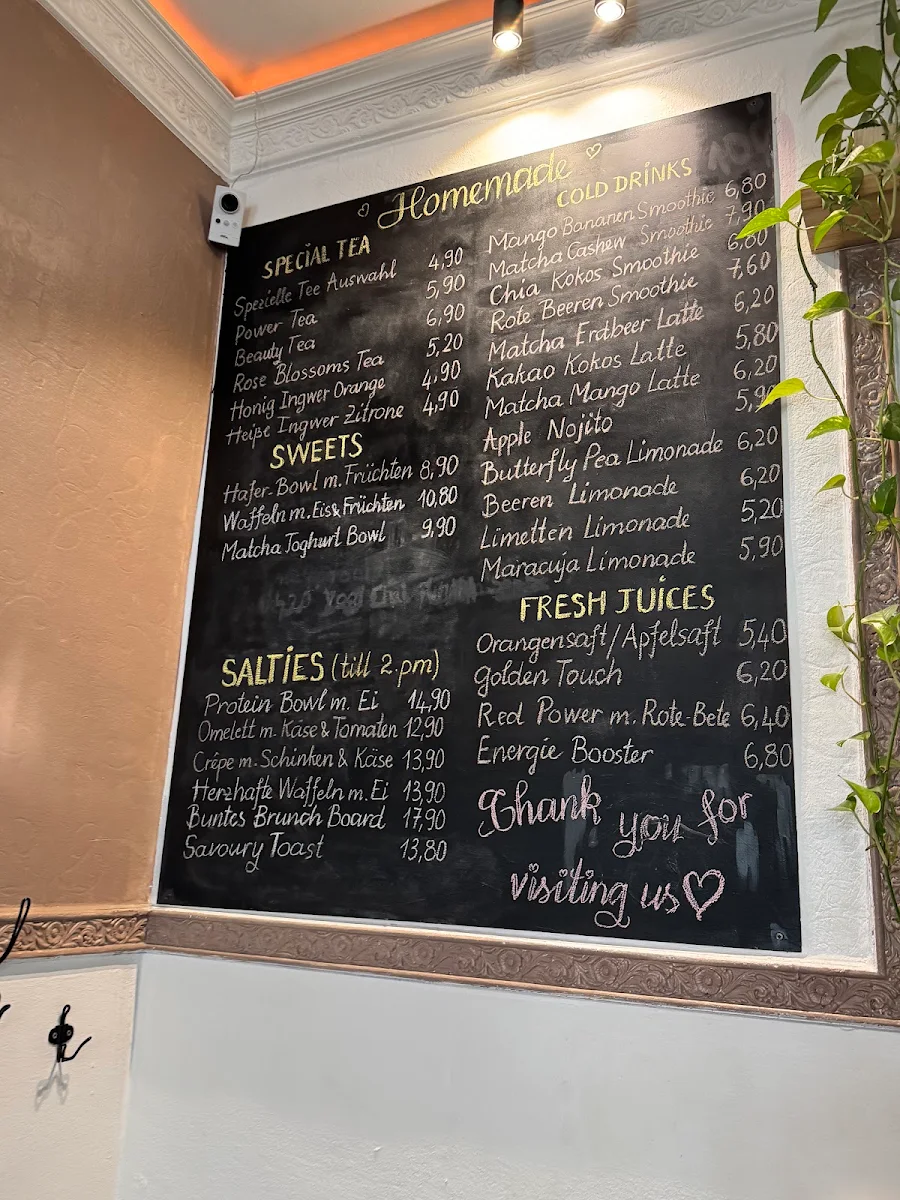 Homemade
SPECIAL TEA
Spezielle Tee Auswahl 4,90
Power Tea 5,90
Beauty Tea 6,90
Rose Blossoms Tea 5,20
Honig Ingwer Orange 4,90
Heiße Ingwer Zitrone 4,90
SWEETS
Hafer-Bowl m. Früchten 8,90
Waffeln m. Eis & Früchten 10,80
Matcha Joghurt Bowl 9,90
SALTIES (till 2 pm)
Protein Bowl m. Ei 14,90
Omelett m. Käse & Tomaten 12,90
Crêpe m. Schinken & Käse 13,90
Herzhafte Waffeln m. Ei 13,90
Buntes Brunch Board 17,90
Savoury Toast 13,80
COLD DRINKS
Mango Bananen Smoothie 6,80
Matcha Cashew Smoothie 7,90
Chia Kokos Smoothie 6,80
Rote Beeren Smoothie 7,60
Matcha Erdbeer Latte 6,20
Kakao Kokos Latte 5,80
Matcha Mango Latte 6,20
Apple Nojito 5,90
Butterfly Pea Limonade 6,20
Beeren Limonade 6,20
Limetten Limonade 5,20
Maracuja Limonade 5,90
FRESH JUICES
Orangensaft/Apfelsaft 5,40
golden Touch 6,20
Red Power m. Rote-Bete 6,40
Energie Booster 6,80
Thank you for
visiting us